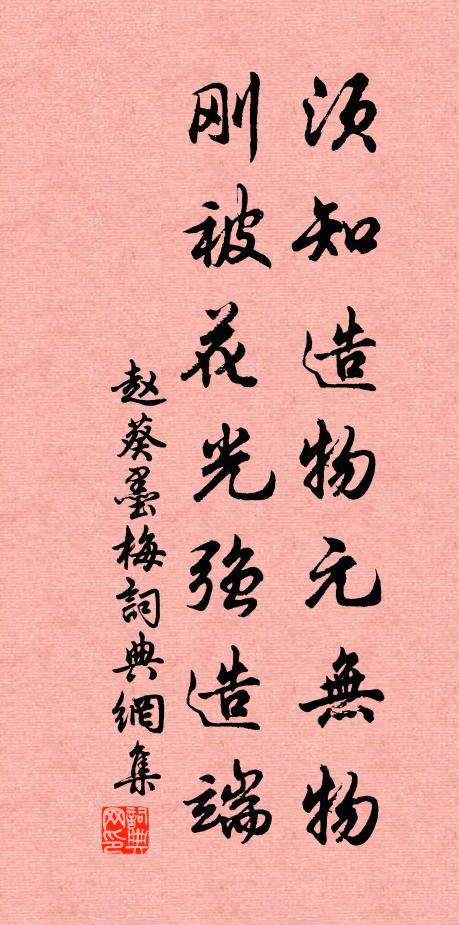 须知造物元無物
刚被花光强造端
赵葵墨梅詞典網集
詞典
网印